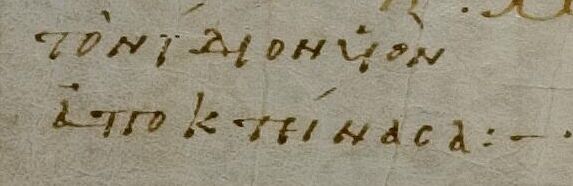 τὸν ἴδιον υἱὸν
ἀποκτείνασα:–